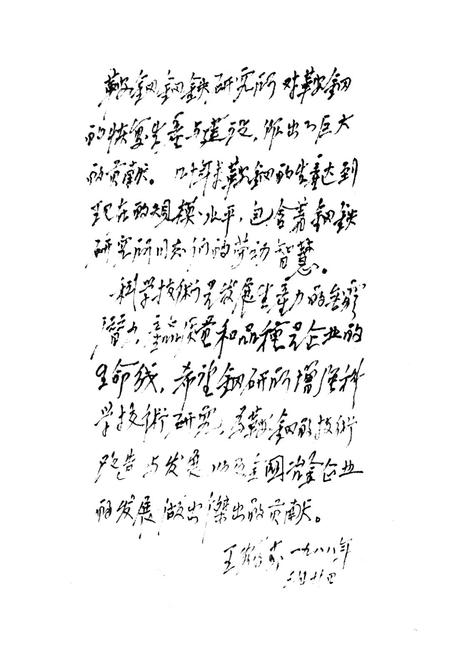 鞍钢钢鉄研究所对鞍钢
的恢复生産与建设，作出了巨大
的贡献。四十年来鞍钢的生産达到
现在的规模、水平，包含著钢鉄
研究所同志们的劳动智慧。
科学技術是发展生産力的
潜力，産品质量和品種是企业的
生命线，希望钢研所增强科
学技術研究，为鞍钢的技術
改造与发展以及全国冶金企业
的发展做出傑出的贡献。
王 一九八八年